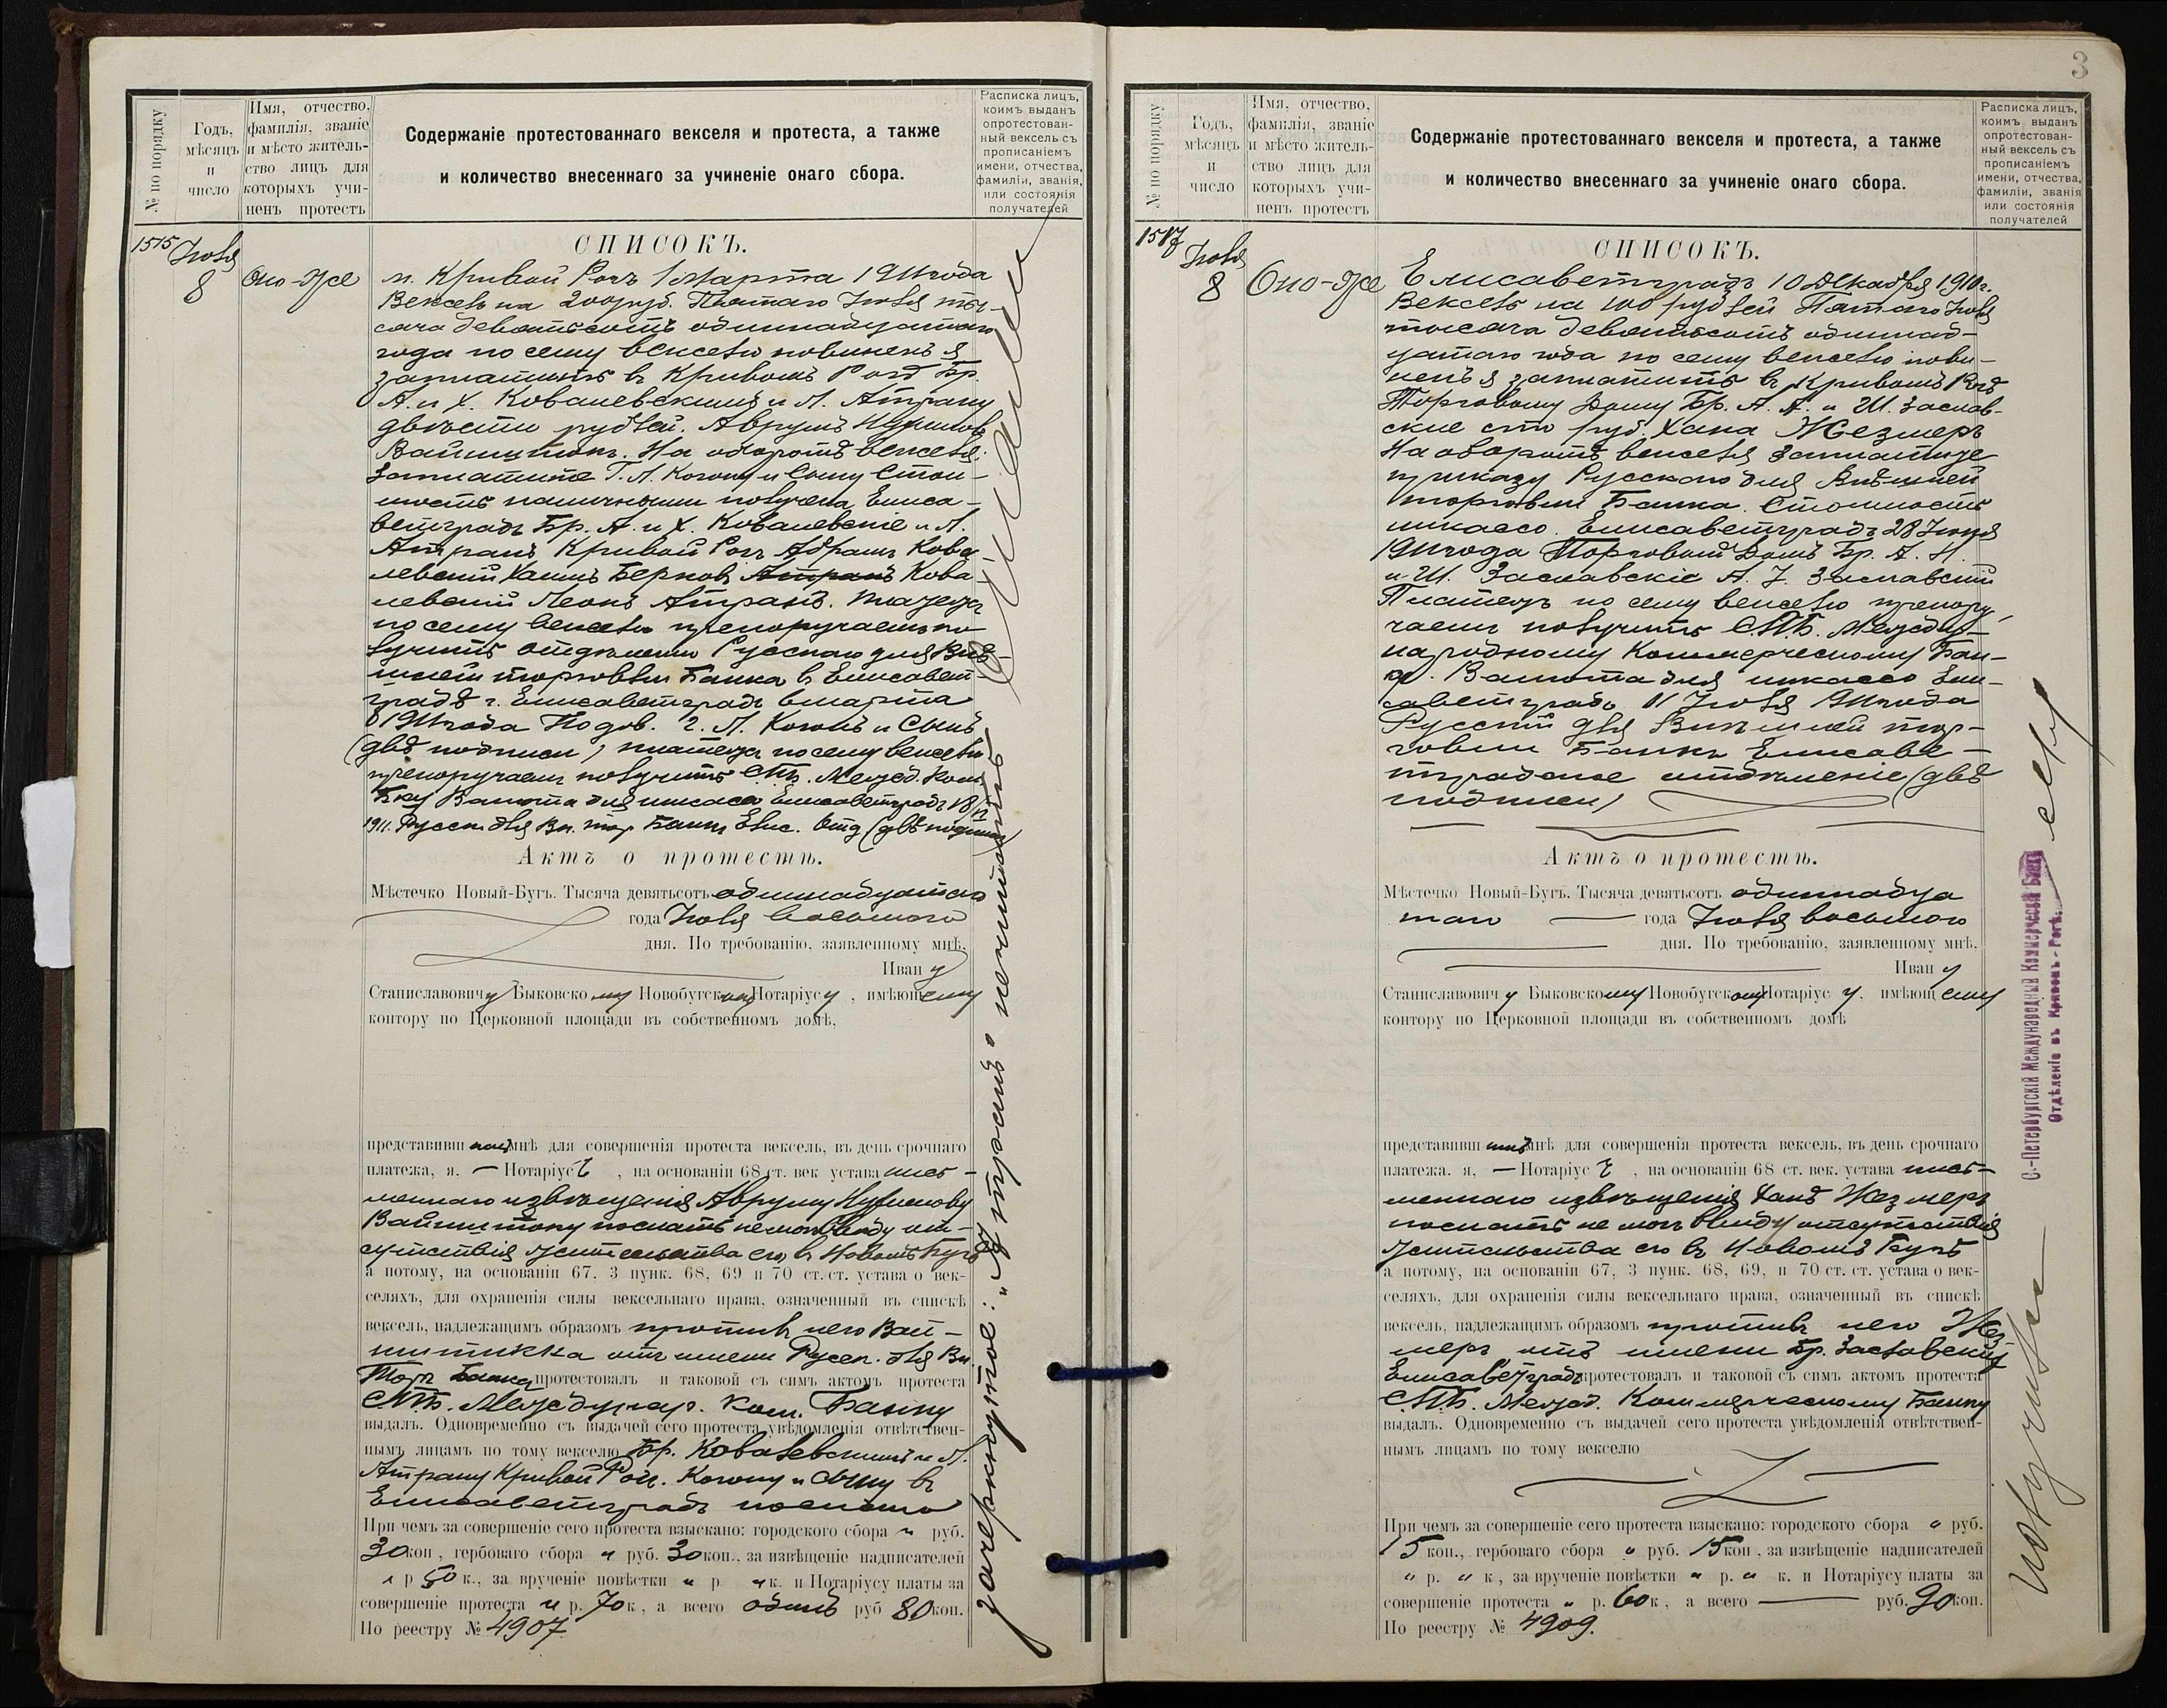 № по порядку
Годъ, мѣсяцъ и число
Имя, отчество, фамилія, званіе и мѣсто жительство лицъ для которыхъ учиненъ протестъ
Содержаніе протестованнаго векселя и протеста, а также
и количество внесеннаго за учиненіе онаго сбора.
Расписка лицъ, коимъ выданъ опротестованный вексель съ прописаніемъ имени, отчества, фамиліи, званія, или состоянія получателей
1515
Іюля
8
Оно-же
СПИСОКЪ.
м. Кривой Рогъ 1 Марта 1911 года
Вексель на 200 руб. Пятаго Іюля ты-
сяча девятьсотъ одиннадцатаго
года по сему векселю повиненъ я
заплатить въ Кривомъ Рогѣ Бр.
А. и Х. Ковалевскимъ и Л. Атрану
двѣсти рублей. Аврумъ
На оборотѣ векселя:
Заплатите Г. Л. Когону и Сыну Стои-
мость наличными получена Елиса-
ветградъ Бр. А. и Х. Ковалевскіе и Л.
Атранъ Кривой Рогъ Абрамъ Кова
левскій Хаимъ Берковъ Атранъ Кова
левскій Леонъ Атранъ. Платежъ
по сему векселю препоручаемъ по
лучить отдѣленію Русскаго для Внѣ-
шней торговли Банка въ Елисавет-
градѣ г. Елисаветградъ 6 марта
1911 года По дов. Г. Л. Когонъ и Сынъ
(двѣ подписи) платежъ по сему векселю
препоручаемъ получить СПБ. Межд. Ком.
Бку Валюта для инкассо Елисаветградъ
1911. Русск. для Вн. тор. Банкъ Елис. Отд (двѣ подписи)
Актъ о протестѣ.
Мѣстечко Новый-Бугъ. Тысяча девятьсотъ одиннадцатаго
года Іюля восьмого
дня. По требованію, заявленному мнѣ,
Иван у
Станиславовичу Быковскому Новобугскому Нотаріусу, имѣющему
контору по Церковной площади въ собственномъ домѣ,
представивш мнѣ для совершенія протеста вексель, въ день срочнаго
платежа, я, — Нотаріусъ, на основаніи 68 ст. век устава пись-
меннаго извѣщенія Авруму
послать не могъ ввиду от-
сутствія жительства его въ Новомъ Бугѣ
а потому, на основаніи 67, 3 пунк. 68, 69 и 70 ст. ст. устава о век-
селяхъ, для охраненія силы вексельнаго права, означенный въ спискѣ
вексель, надлежащимъ образомъ противъ него Вай-
отъ имени Русск. для Вн.
Торг. Банка протестовалъ и таковой съ симъ актомъ протеста
СПБ. Междунар. Ком. Банку
выдалъ. Одновременно съ выдачей сего протеста увѣдомленія отвѣтствен-
нымъ лицамъ по тому векселю Бр. Ковалевскимъ и Л.
Атрану Кривой Рогъ. Когону и Сыну въ
Елисаветградъ послано
При чемъ за совершеніе сего протеста взыскано: городского сбора " руб.
30 коп, гербоваго сбора " руб. 30 коп., за извѣщеніе надписателей
" р 50 к., за врученіе повѣстки " р " к. и Нотаріусу платы за
совершеніе протеста " р. 70 к, а всего одинъ руб 80 коп.
По реестру № 4907
зачеркнутое: "Атранъ" не читать
3
№ по порядку
Годъ, мѣсяцъ и число
Имя, отчество, фамилія, званіе и мѣсто жительство лицъ для которыхъ учиненъ протестъ
Содержаніе протестованнаго векселя и протеста, а также
и количество внесеннаго за учиненіе онаго сбора.
Расписка лицъ, коимъ выданъ опротестованный вексель съ прописаніемъ имени, отчества, фамиліи, званія или состоянія получателей
1517
Іюля
8
Оно-же
СПИСОКЪ.
Елисаветградъ 10 Декабря 1910 г.
Вексель на 100 рублей Пятаго Іюля
тысяча девятьсотъ одиннад-
цатаго года по сему векселю пови-
ненъ я заплатить въ Кривомъ Рогѣ
Торговому Дому Бр. А. Я. и Ш. Заслав-
скіе сто руб. Хана Жезмеръ
На оборотѣ векселя заплатите
приказу Русскаго для Внѣшней
торговли Банка. Стоимость
инкассо. Елисаветградъ 28 Іюня
1911 года Торговый Домъ Бр. А. Я.
и Ш. Заславскіе А. Заславскій
Платежъ по сему векселю препору-
чаемъ получить СПБ. Между-
народному Коммерческому Бан-
ку. Валюта для инкассо Ели-
саветградъ 1 Іюля 1911 года
Русскій для Внѣшней тор-
говли Банкъ Елисаве-
тградское отдѣленіе (двѣ
подписи)
Актъ о протестѣ.
Мѣстечко Новый-Бугъ. Тысяча девятьсотъ одиннадца
таго — года Іюля восьмого
дня. По требованію, заявленному мнѣ,
Иван у
Станиславовичу Быковскому Новобугскому Нотаріусу, имѣющему
контору по Церковной площади въ собственномъ домѣ
представивш мнѣ для совершенія протеста вексель, въ день срочнаго
платежа. я, — Нотаріусъ, на основаніи 68 ст. век. устава пись-
меннаго извѣщенія Ханѣ Жезмеръ
послать не могъ ввиду отсутствія
жительства его въ Новомъ Бугѣ
а потому, на основаніи 67, 3 пунк. 68, 69, и 70 ст. ст. устава о век-
селяхъ, для охраненія силы вексельнаго права, означенный въ спискѣ
вексель, надлежащимъ образомъ противъ него Жез-
меръ отъ имени Бр. Заславскіе
Елисаветградъ протестовалъ и таковой съ симъ актомъ протеста
СПБ. Межд. Коммерческому Банку
выдалъ. Одновременно съ выдачей сего протеста увѣдомленія отвѣтствен-
нымъ лицамъ по тому векселю
При чемъ за совершеніе сего протеста взыскано: городского сбора " руб.
15 коп., гербоваго сбора " руб. 15 коп, за извѣщеніе надписателей
" р. " к, за врученіе повѣстки " р. " к. и Нотаріусу платы за
совершеніе протеста " р. 60 к, а всего — руб. 90 коп.
По реестру № 4909.
С.-Петербургскій Международный Коммерческій Банкъ
Отдѣленіе въ Кривомъ-Рогѣ.